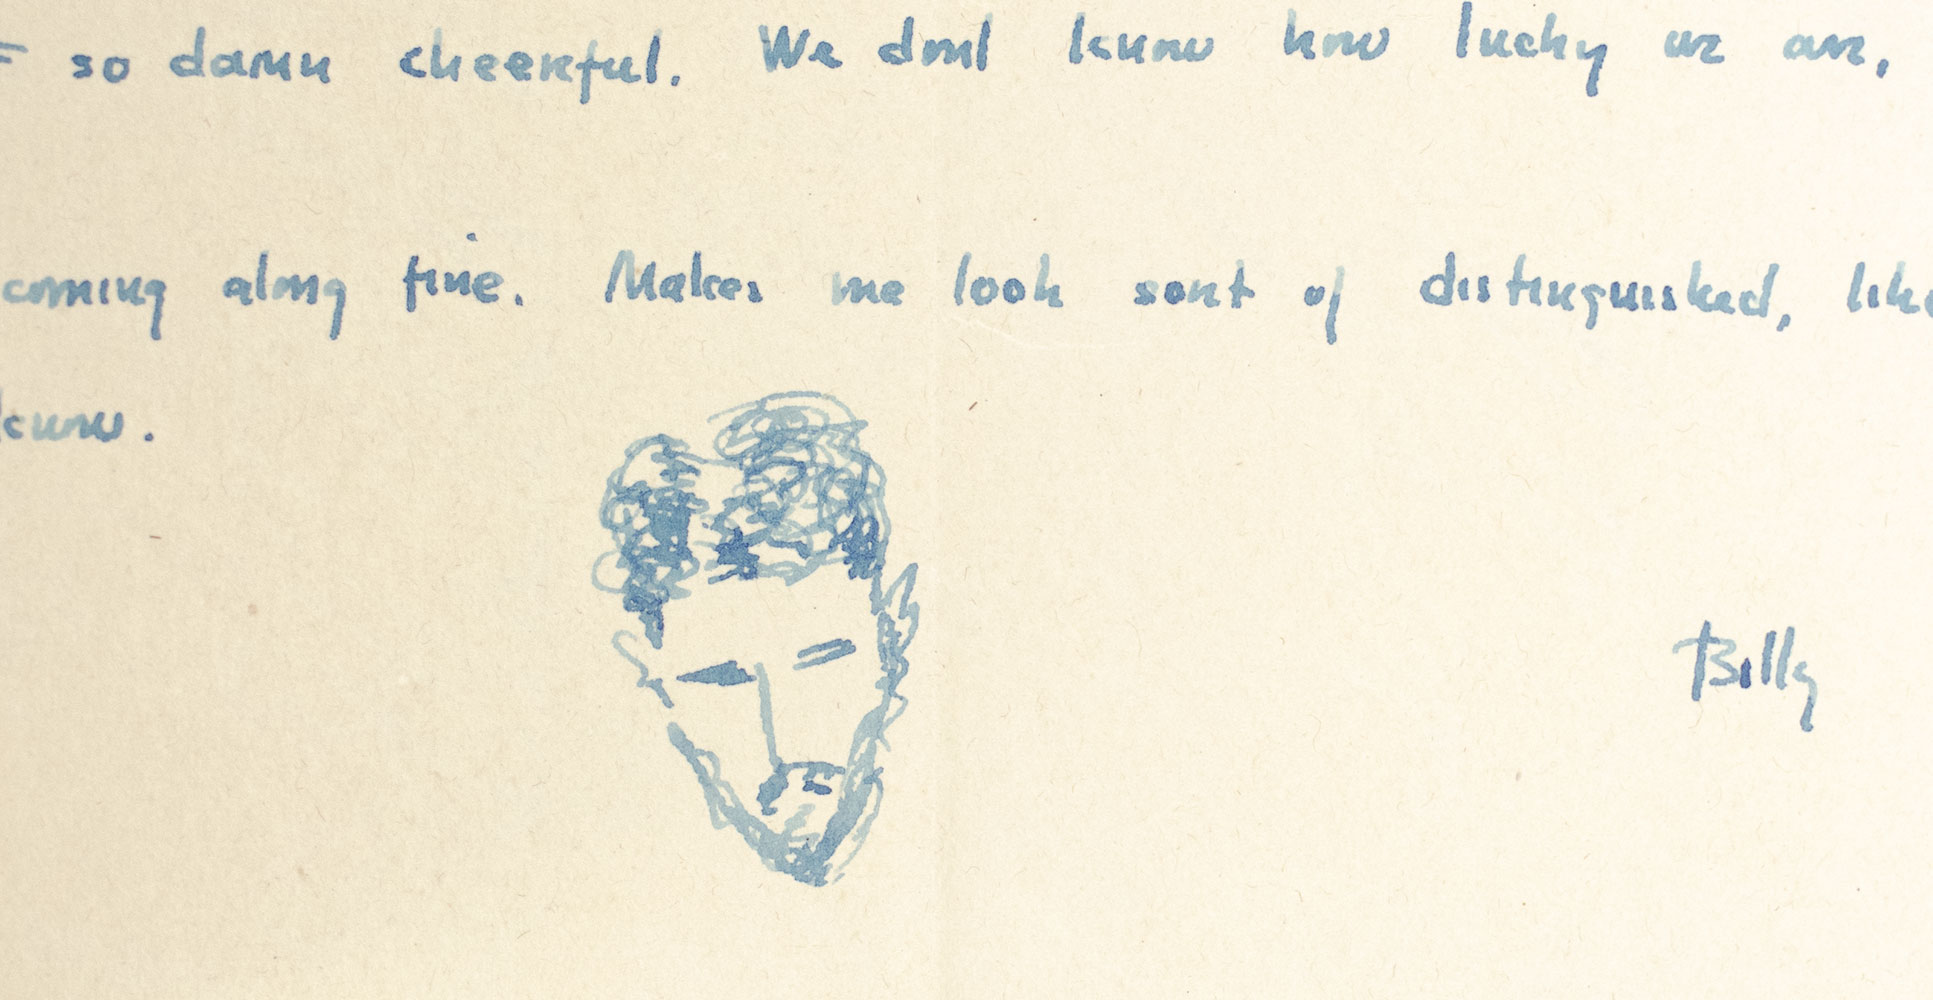 so damn cheerful. We dont know how lucky we are,
coming along fine. Makes me look sort of distinguished, like
know.
Billy